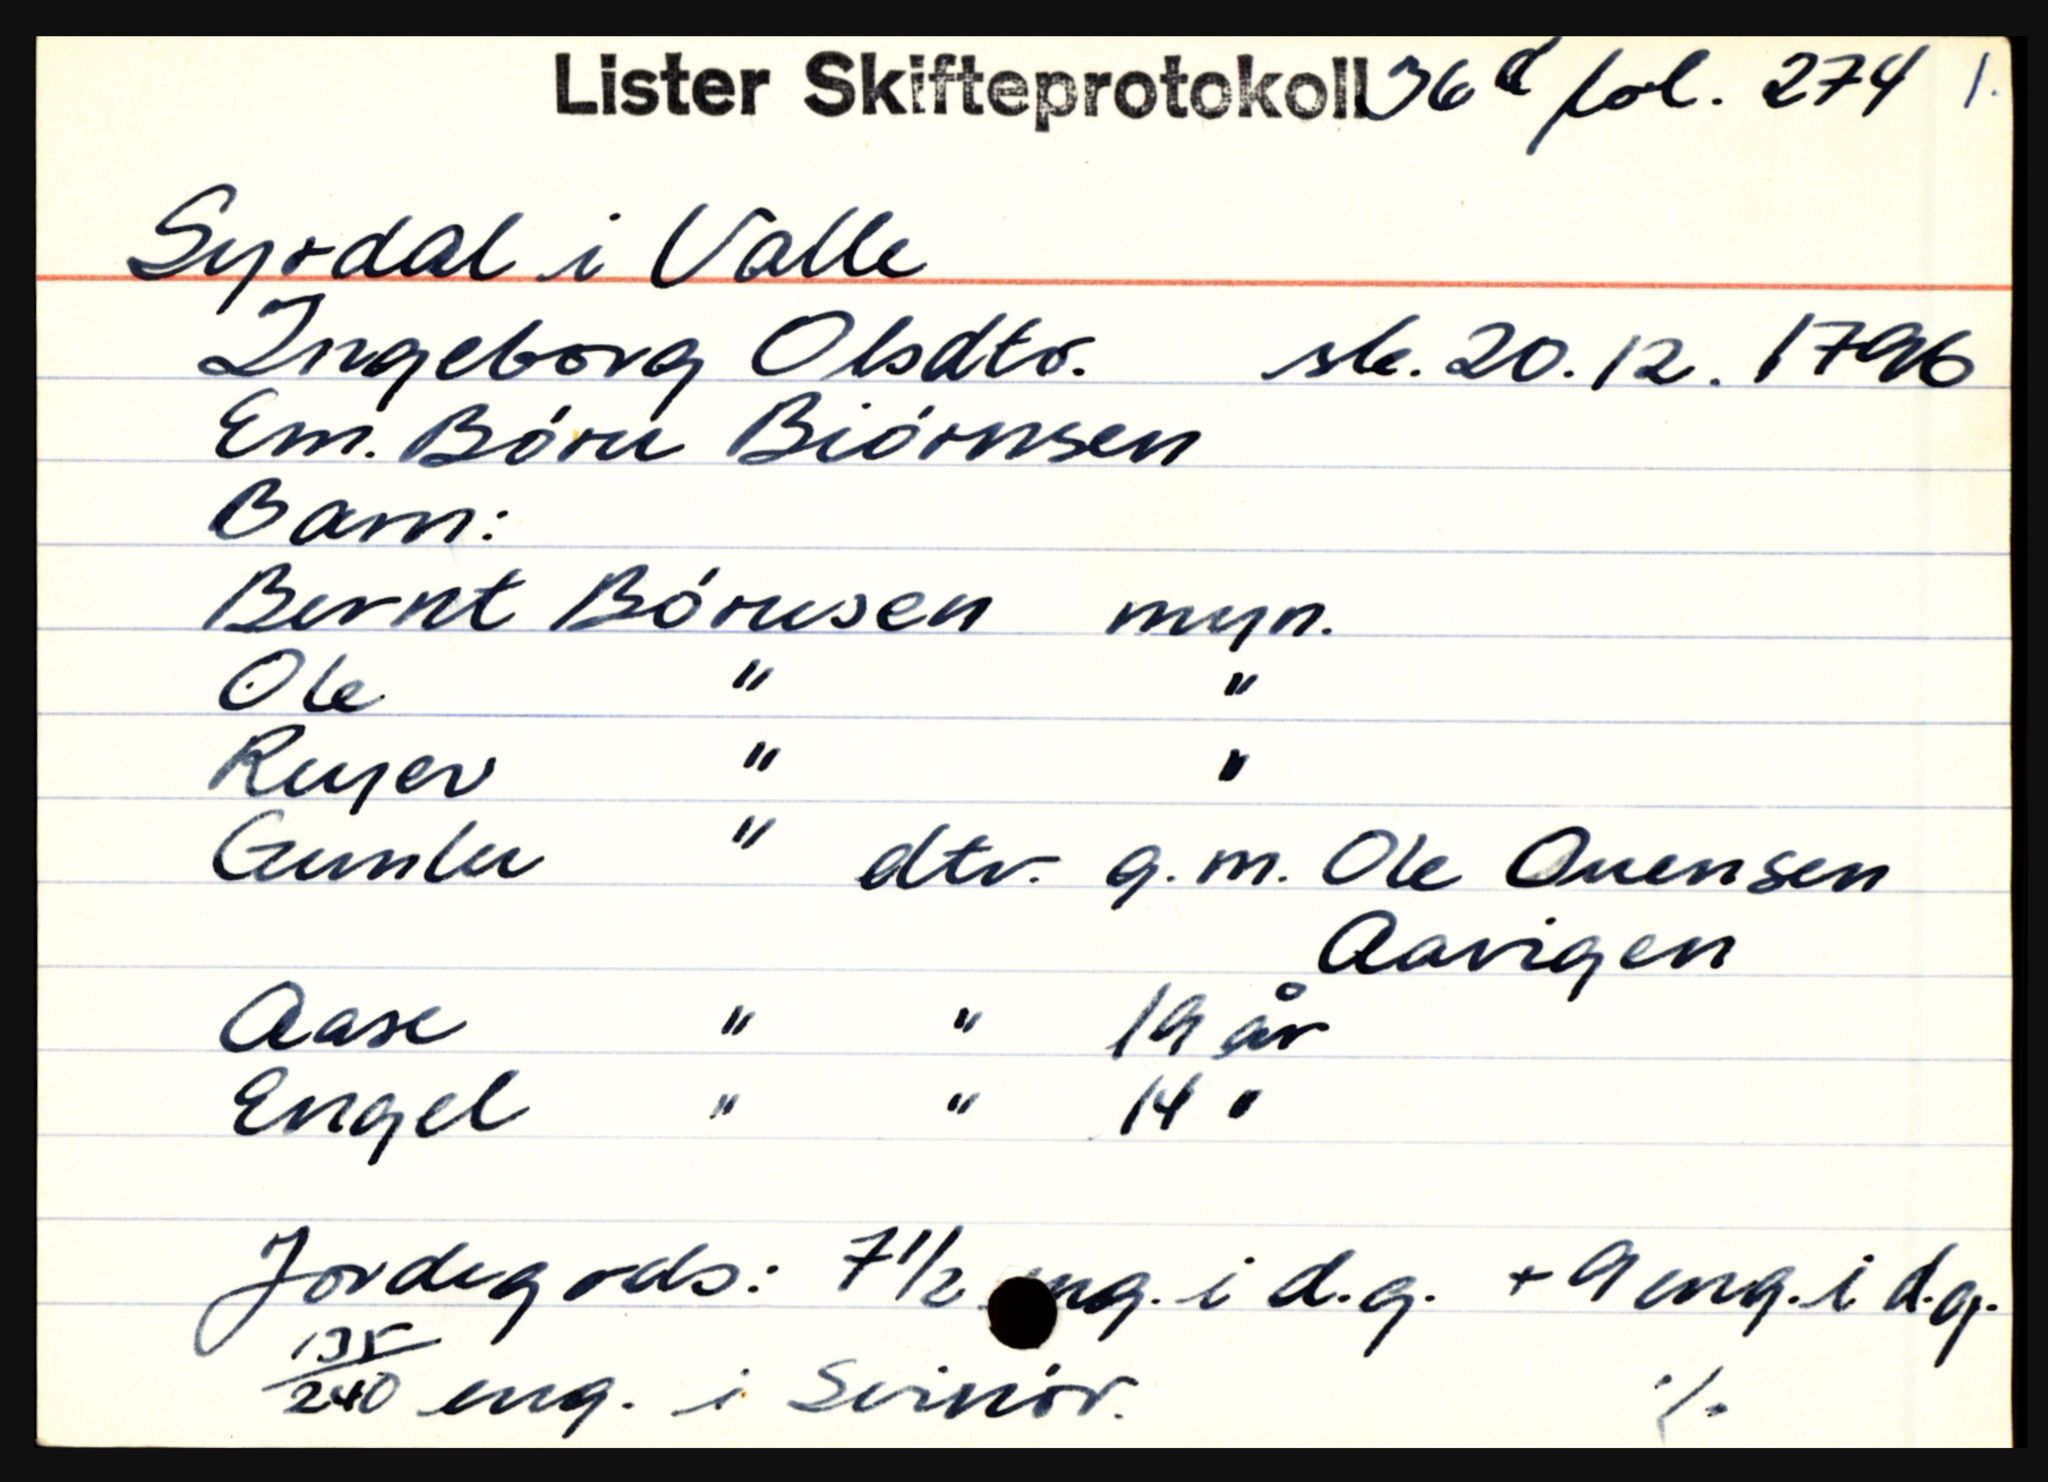 Lister Skifteprotokoll 36d fol. 274 1.
Syrdal i Valle
Ingeborg Olsdtr. sk. 20.12.1796
Em. Böru Biörnsen
Barn:
Bernt Börusen myn.
Ole " "
Reyer " "
Gunlu " dtr. g.m. Ole Ouensen
Aavigen
Aase " " 19 år
Engel " " 14 "
Jordegods: 7 1/2 eng. i d.g. + 9 eng. i d.g.
135/240 eng. i Svinör.
./.